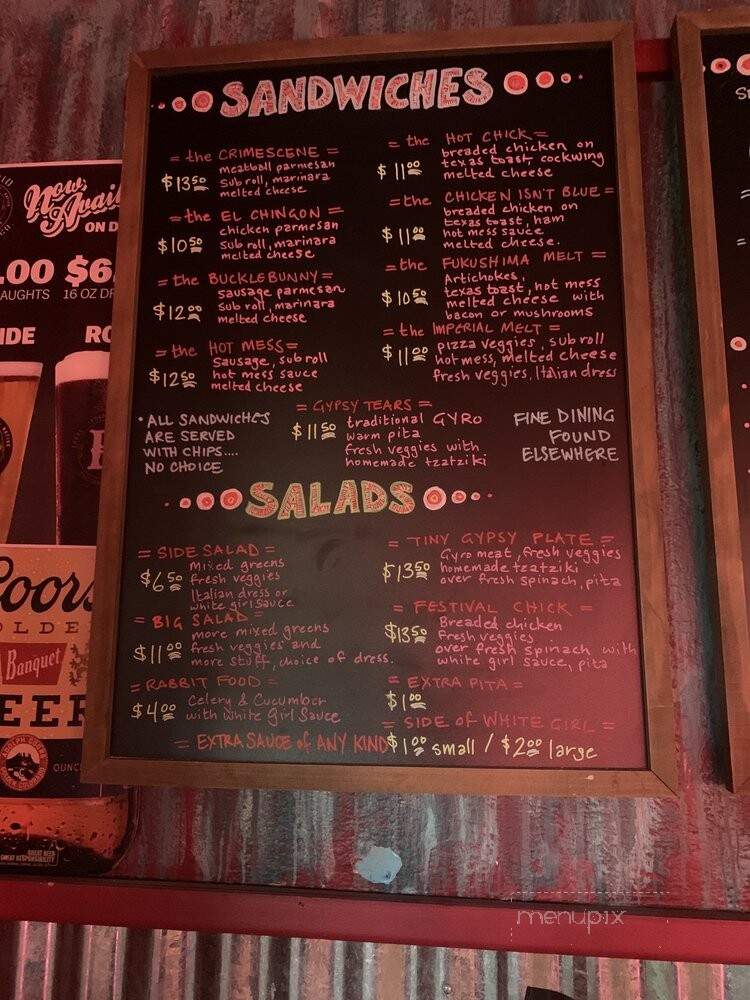 SANDWICHES
= the CRIMESCENE =
$13 50
meatball parmesan
Sub roll, marinara
melted cheese
= the EL CHINGON =
$10 50
chicken parmesan
Sub roll, marinara
melted cheese
= the BUCKLEBUNNY =
$12 00
sausage parmesan
sub roll, marinara
melted cheese
= the HOT MESS =
$12 50
Sausage, sub roll
hot mess sauce
melted cheese
= the HOT CHICK =
$11 00
breaded chicken on
texas toast, cockwing
melted cheese
= the CHICKEN ISN'T BLUE =
$11 00
breaded chicken on
texas toast, ham
hot mess sauce
melted cheese.
= the FUKUSHIMA MELT =
$10 50
Artichokes,
texas toast, hot mess
melted cheese with
bacon or mushrooms
= the IMPERIAL MELT =
$11 00
pizza veggies, sub roll
hot mess, melted cheese
fresh veggies, Italian dress
= GYPSY TEARS =
$11 50
traditional GYRO
warm pita
fresh veggies with
homemade tzatziki
• ALL SANDWICHES
ARE SERVED
WITH CHIPS....
NO CHOICE
FINE DINING
FOUND
ELSEWHERE
SALADS
= SIDE SALAD =
$6 50
mixed greens
fresh veggies
Italian dress or
white girl sauce
= BIG SALAD =
$11 00
more mixed greens
fresh veggies and
more stuff, choice of dress.
= RABBIT FOOD =
$4 00
Celery & Cucumber
with White Girl Sauce
= TINY GYPSY PLATE =
$13 50
Gyro meat, fresh veggies
homemade tzatziki
over fresh spinach, pita
= FESTIVAL CHICK =
$13 50
Breaded chicken
fresh veggies
over fresh spinach with
white girl sauce, pita
= EXTRA PITA =
$1 00
= SIDE OF WHITE GIRL =
= EXTRA SAUCE of ANY KIND $1 00 small / $2 00 large
Now
ON D
.00 $6.
AUGHTS 16 OZ DR
IDE RO
Coors
OLDE
Banquet
EER
OUNC
GREAT BEER
GREAT RESPONSIBILITY
menupix